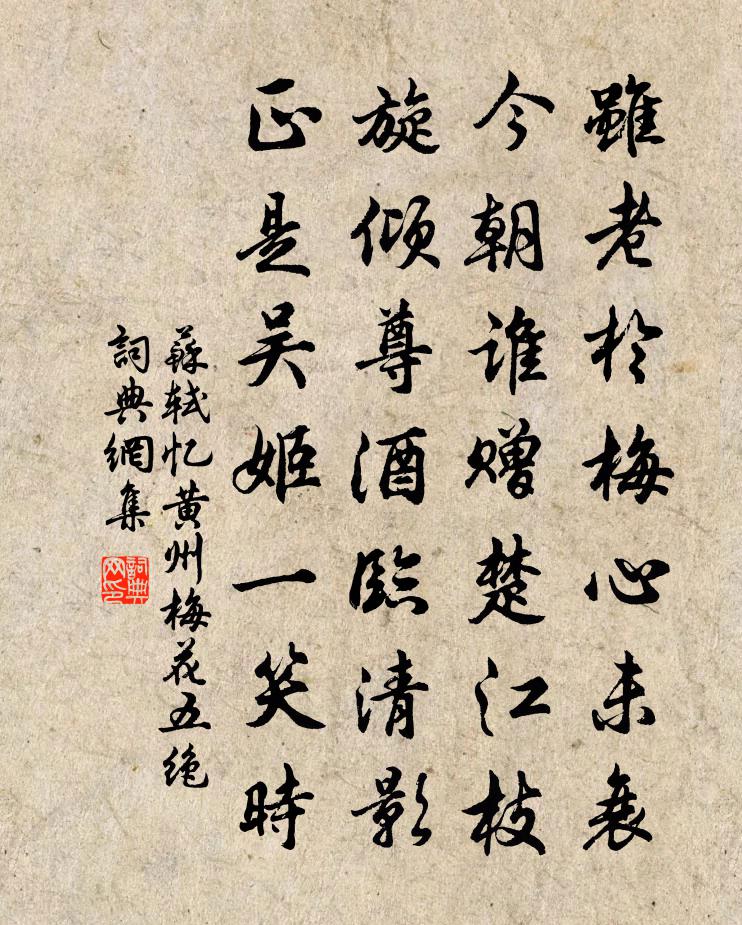 雖老於梅心未衰
今朝誰贈楚江枝
旋傾尊酒臨清影
正是吴姬一笑時
蘇軾忆黄州梅花五絶
詞典網集
詞典网印